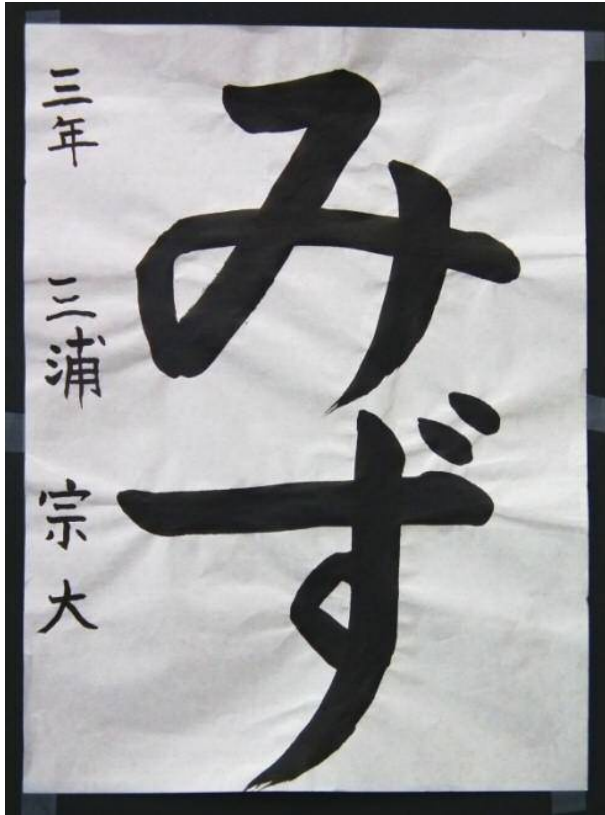 みず
三年 三浦 宗大